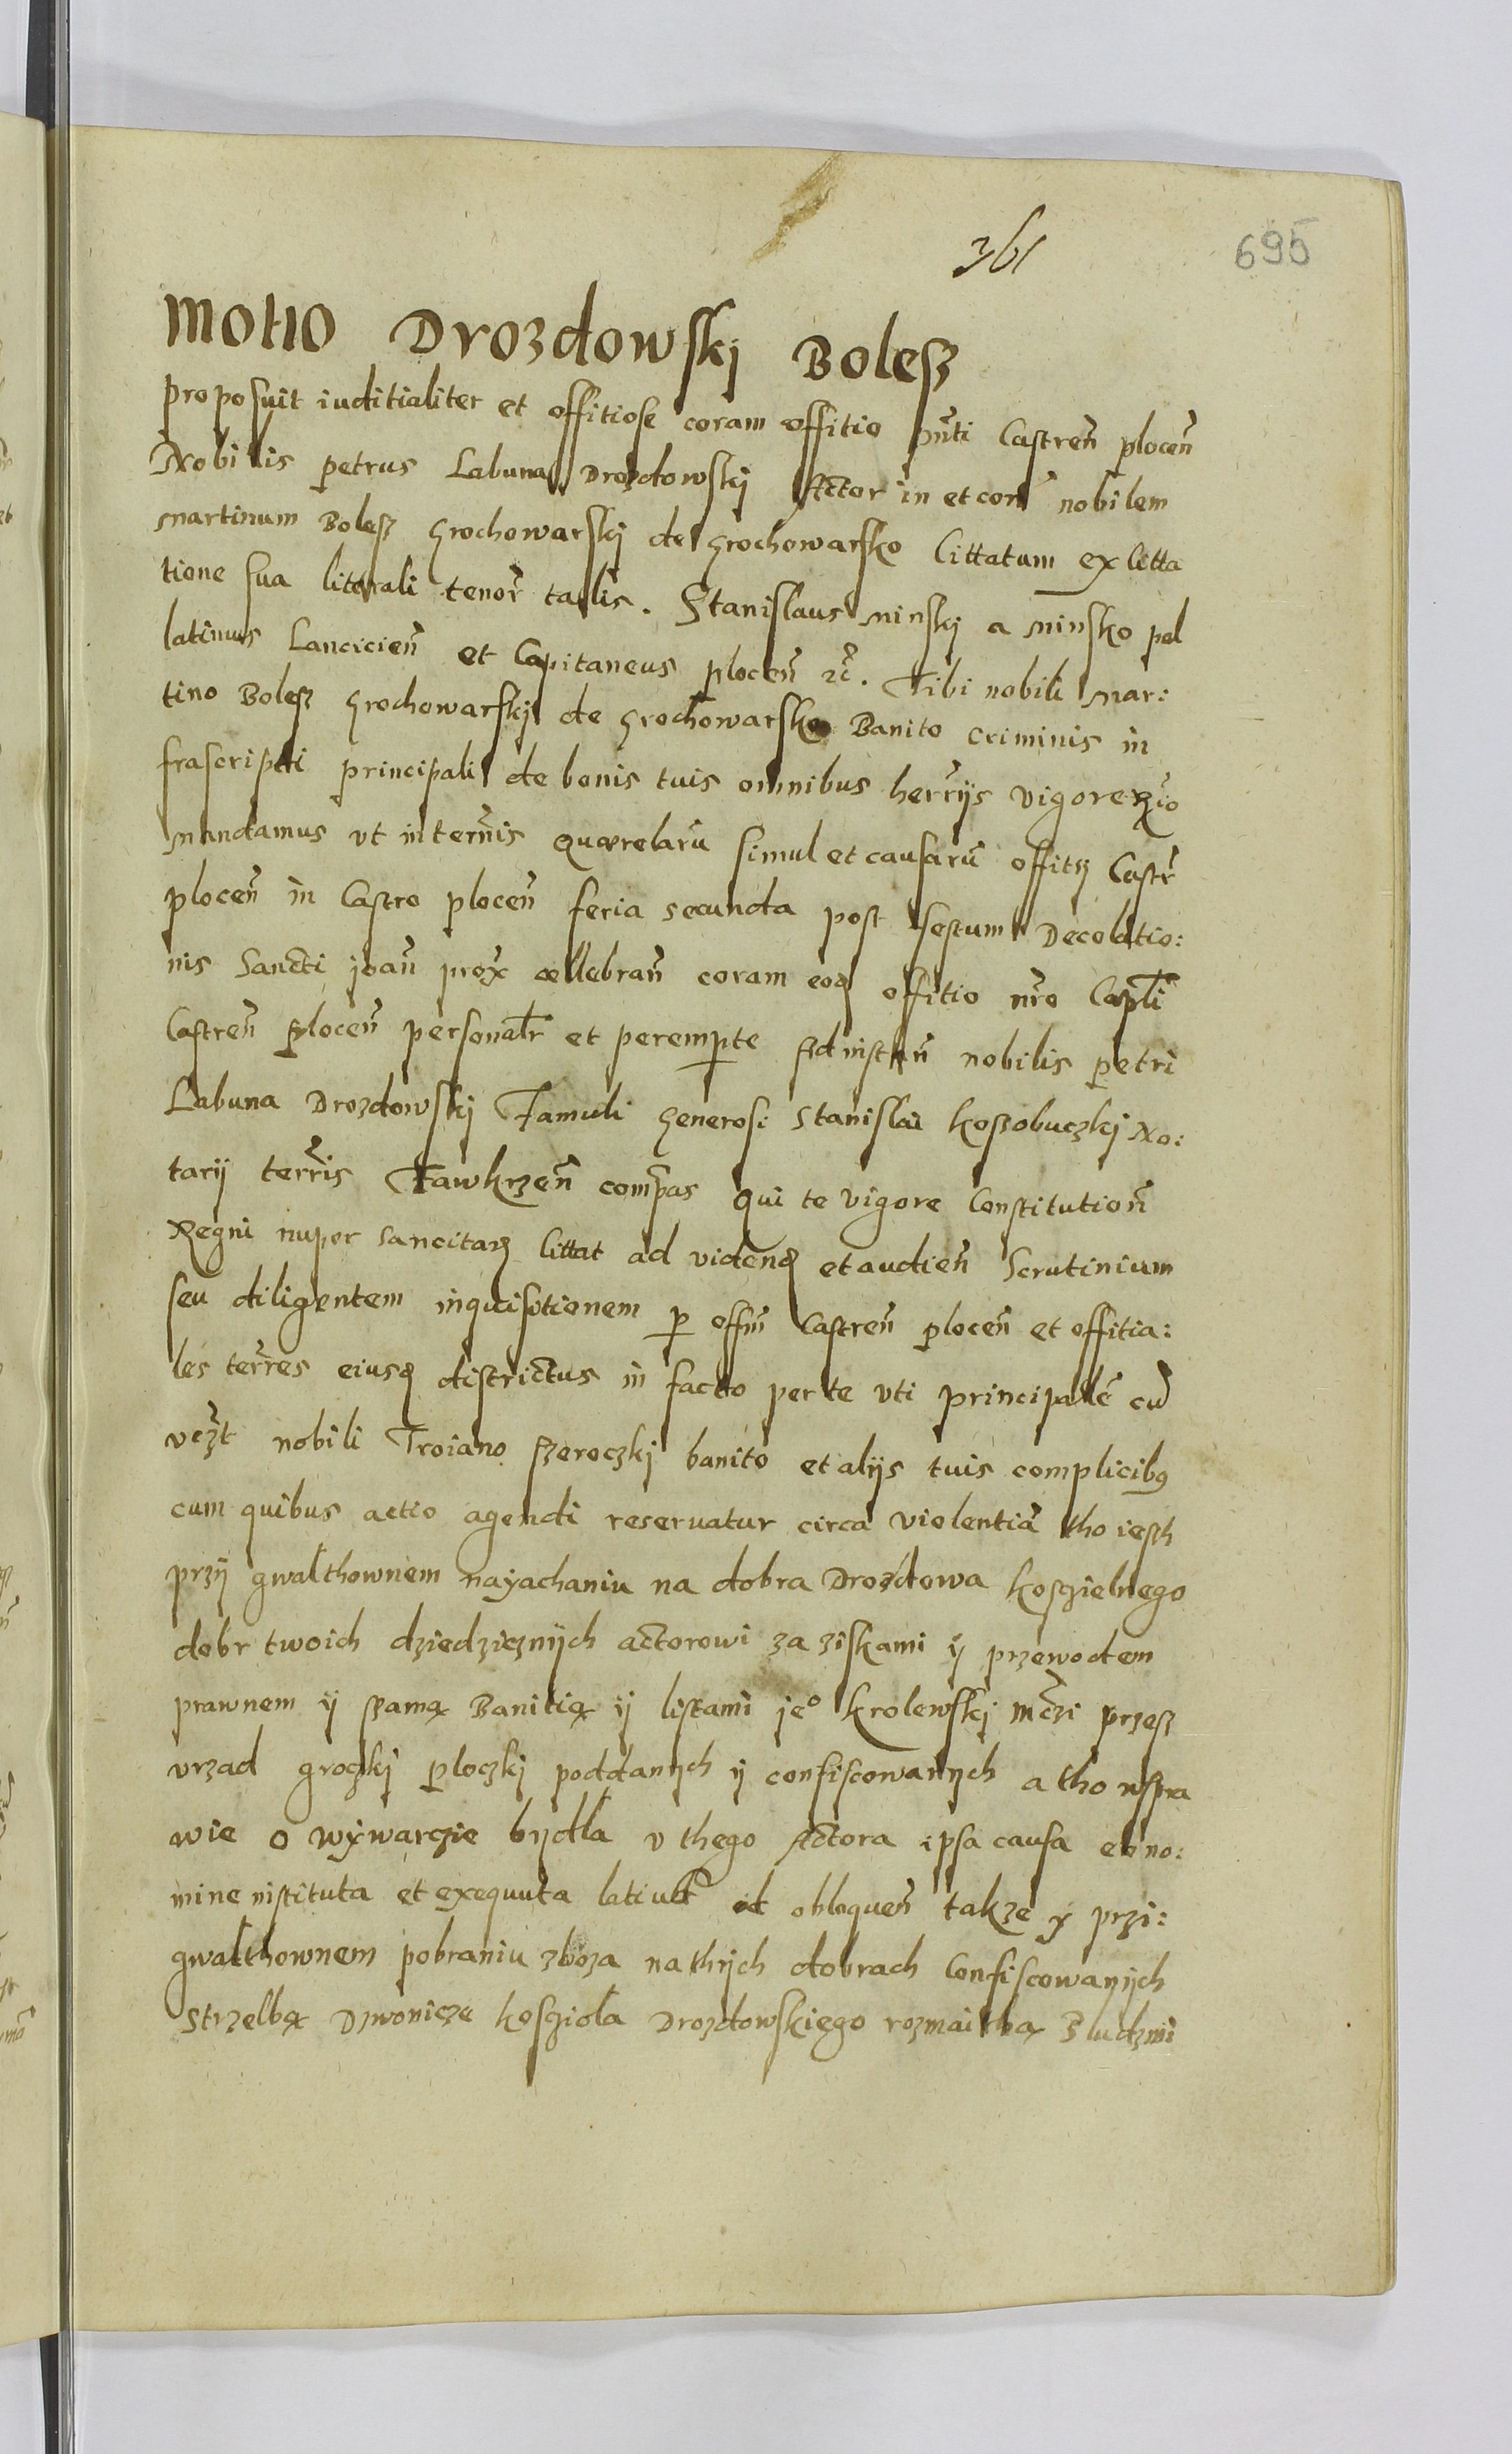 361
695
Motio Drozdowskj Bolesz
proposuit iuditialiter et offitiose coram offitio pnti Castren plocen
Nobilis petrus Labuna Drozdowskj Actor in et con nobilem
Martinum Bolesz Grochowarskj de Grochowarsko Cittatum ex Citta
tione sua literali tenor talis. Stanislaus Minskj a Minsko pal
latinus Lancicien et Capitaneus plocen etc. Tibi nobili Mar:
tino Bolesz Grochowarskj de Grochowarsko Banito criminis in
frascripti principali de bonis tuis omnibus herrijs vigore
Mandamus vt in terminis Quærelaru simul et causaru offitij Castr
plocen in Castro plocen feria secunda post festum Decolatio:
nis Sancti joan prox cellebran coram eoq offitio nro Capli
Castren plocen personalr et perempte Ad instan nobilis petri
Labuna Drozdowskj Famuli Generosi Stanislai Koszobuczkj No:
tarij terris Zawkrzen compas Qui te vigore Constitution
Regni nuper sancitarz Cittat ad videnq et audien Scrutinium
seu diligentem inquisitionem p offm Castren plocen et offitia:
les terres eiusq districtus in facto per te vti principale cu
vczt nobili Troiano Szeroczkj banito et alijs tuis complicibq
cum quibus actio agendi reseruatur circa violentia tho iesth
przij gwalthownem nayachaniu na dobra Drozdowa kosczielnego
dobr twoich dziedzicznijch actorowi za ziskami ij przewodem
prawnem ij szamą Banitią ij listami jeo Krolewskj Mczi przesz
vrzad groczkj ploczkj poddanijch ij confiscowanijch a tho wspra
wie o wijwarczie bijdla v thego Actora ipsa causa eo no:
mine instituta et exequuta latiult id obloquen takze y przi:
gwalthownem pobraniu zboza na thijch dobrach Confiscowanijch
Strzelbą Dzwonicze kosziola Drozdowskiego rozmaithą Z ludzmi